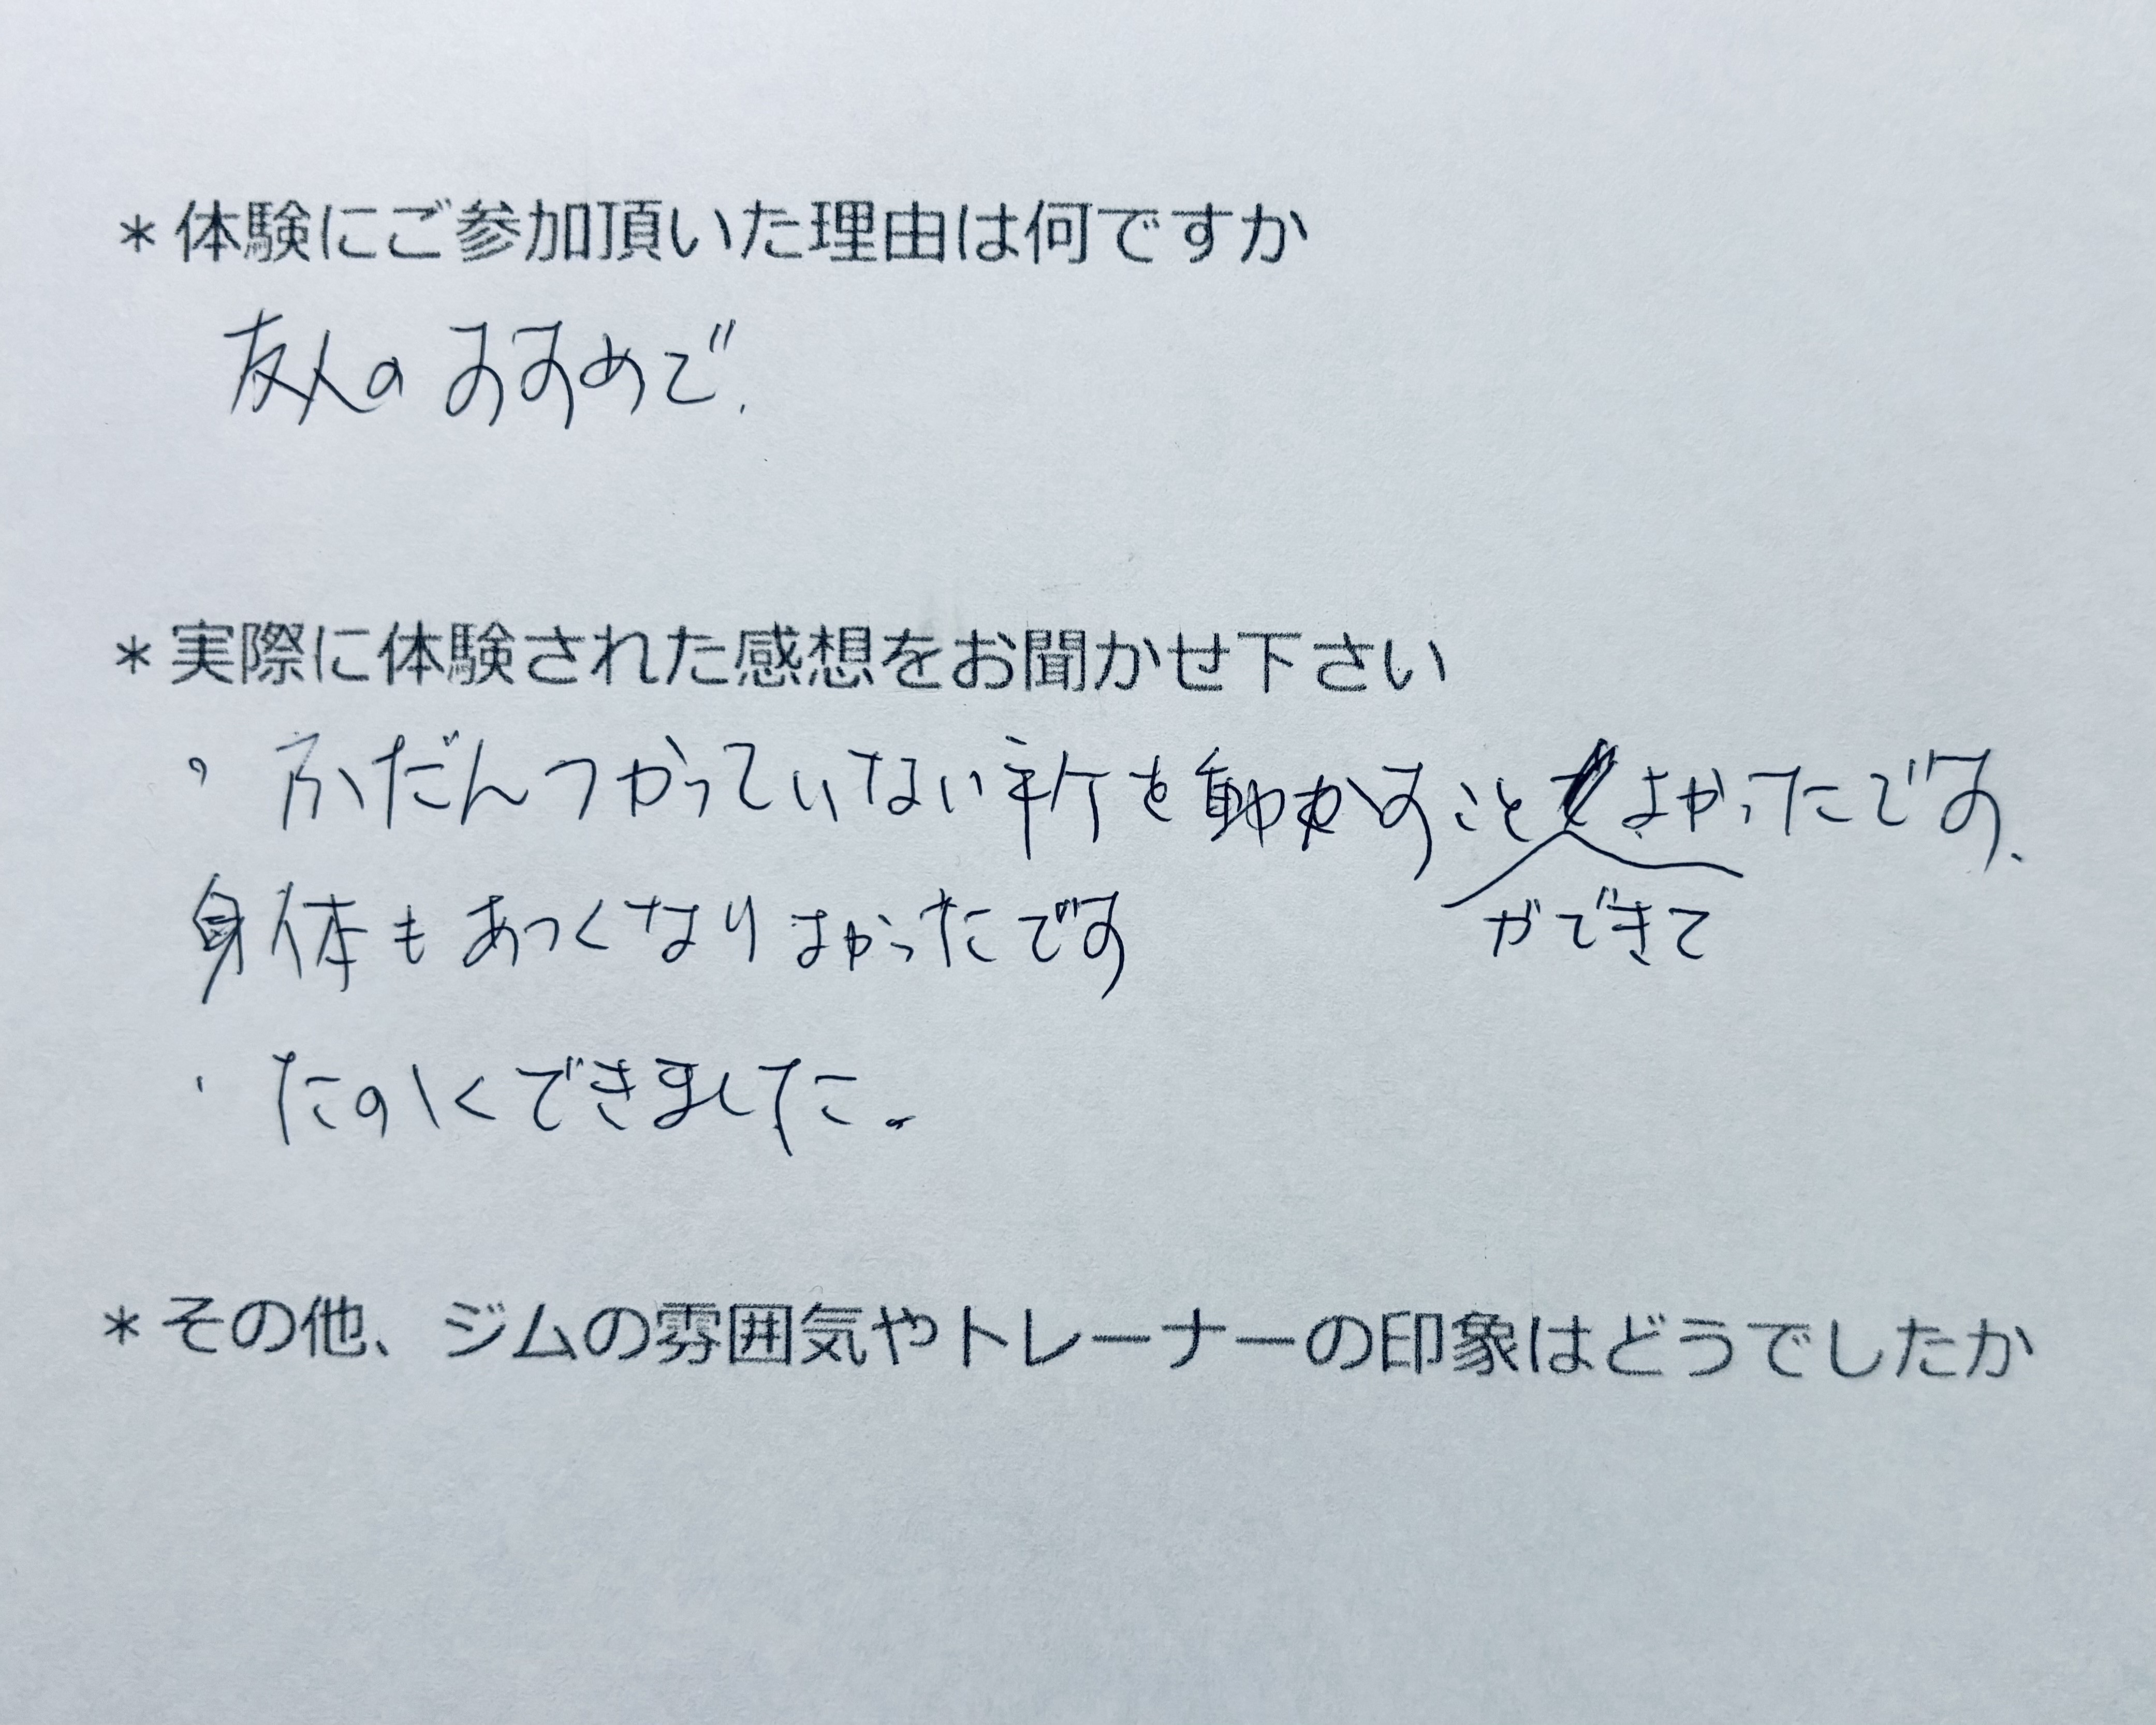 *体験にご参加頂いた理由は何ですか
友人のすすめで.
*実際に体験された感想をお聞かせ下さい
・ふだんつかっていない所を動かすことよかったです、
ができて
身体もあつくなりよかったです
・たのしくできました。
*その他、ジムの雰囲気やトレーナーの印象はどうでしたか